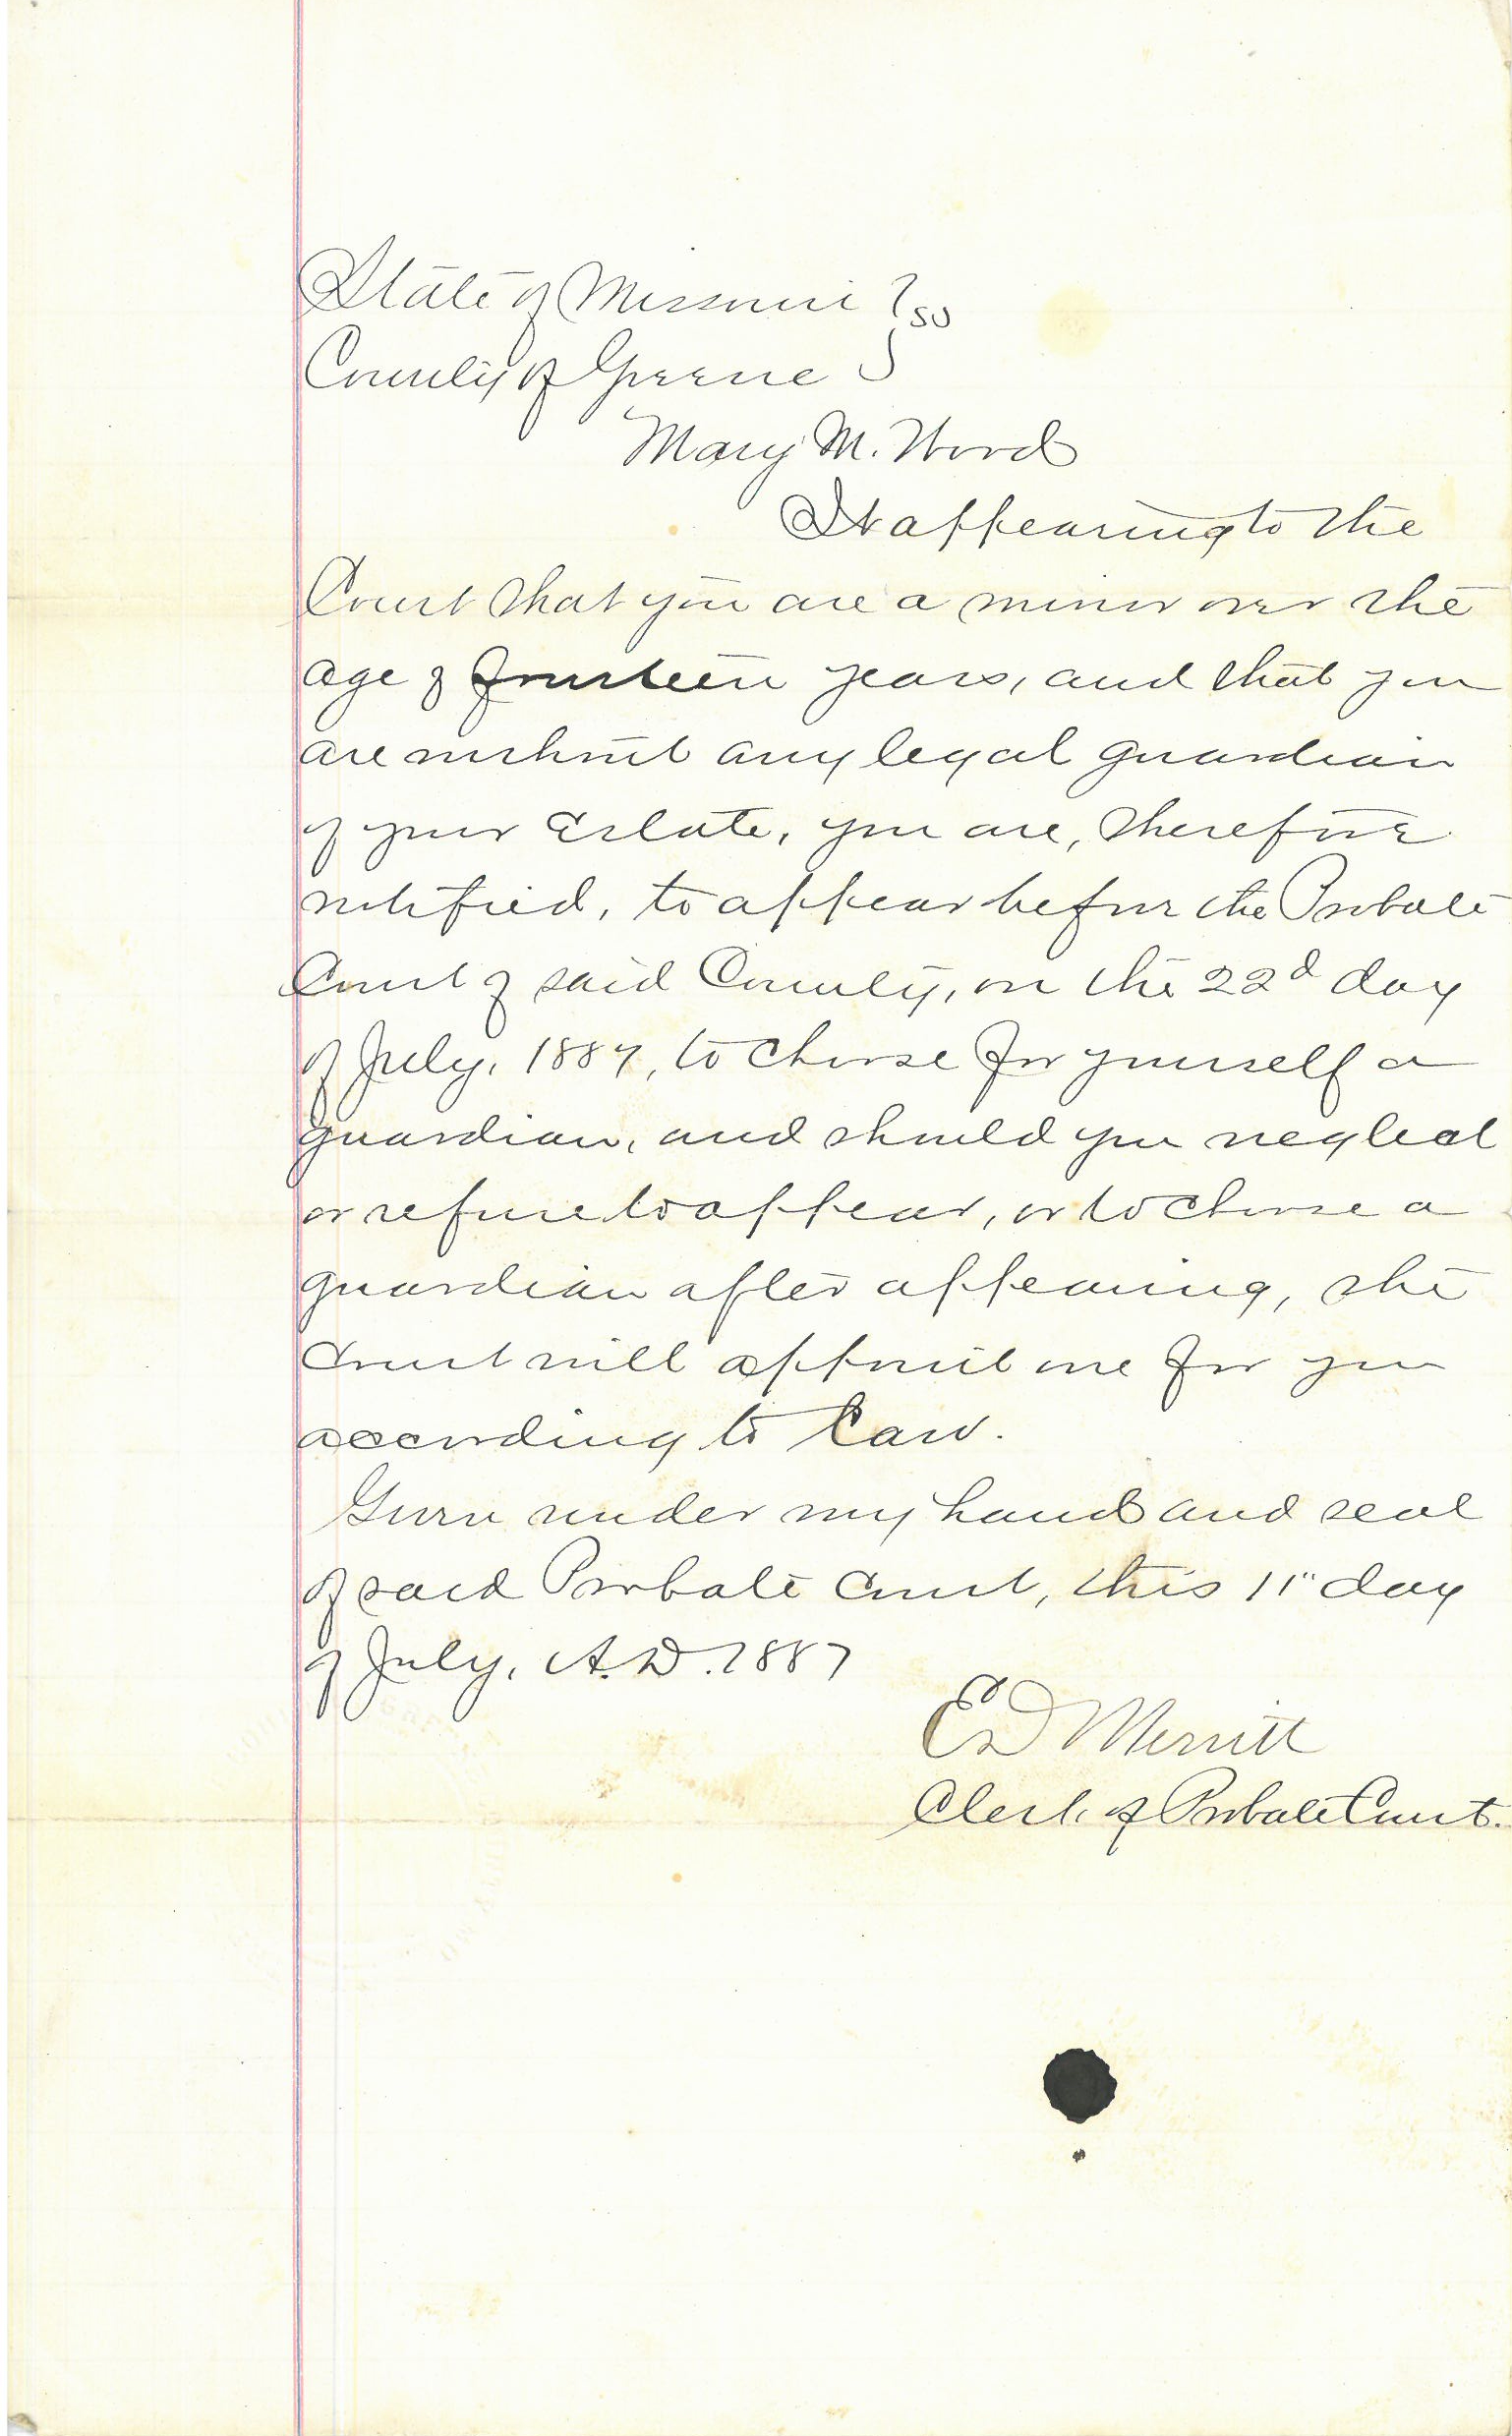 State of Missouri } ss
County of Greene }
Mary M. Wood
It appearing to the
Court that you are a minor over the
age of fourteen years, and that you
are without any legal guardian
of your Estate, you are, therefore
notified, to appear before the Probate
Court of said County, on the 22d day
of July, 1887, to choose for yourself a
guardian, and should you neglect
or refuse to appear, or to choose a
guardian after appearing, the
Court will appoint one for you
according to Law.
Given under my hand and seal
of said Probate Court, this 11" day
of July, A.D. 1887
ED Merritt
Clerk of Probate Court.